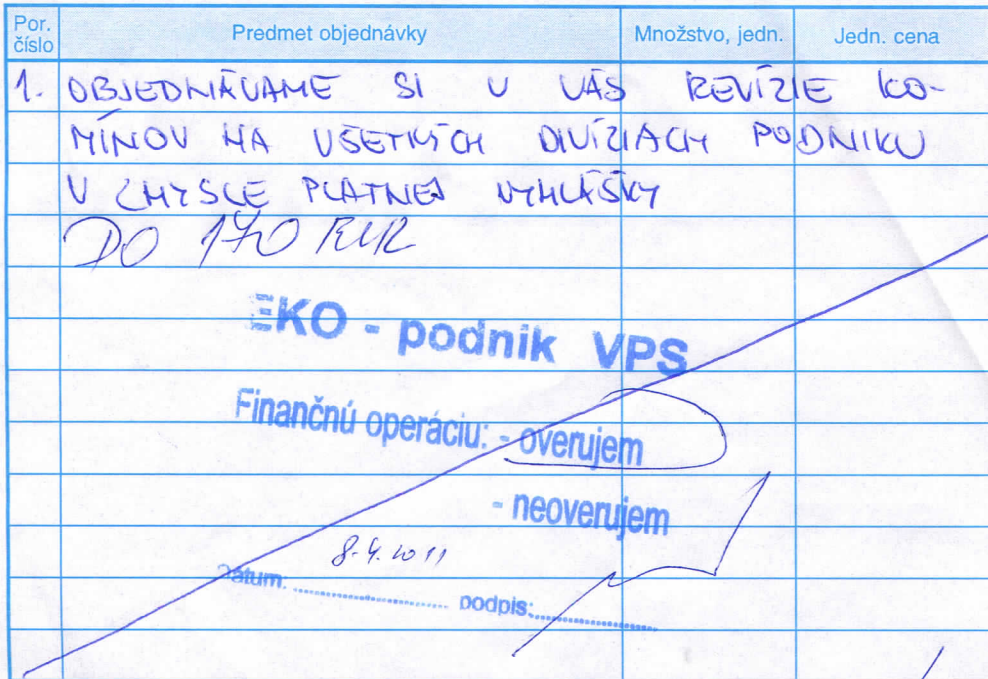 Por. číslo Predmet objednávky Množstvo, jedn. Jedn. cena
1. OBJEDNÁVAME SI U VÁS REVÍZIE KO-
MÍNOV NA VŠETKÝCH DIVÍZIACH PODNIKU
V ZMYSLE PLATNEJ VYHLÁŠKY
DO 170 EUR
EKO - podnik VPS
Finančnú operáciu: - overujem
- neoverujem
8.4.2011
Dátum: podpis: